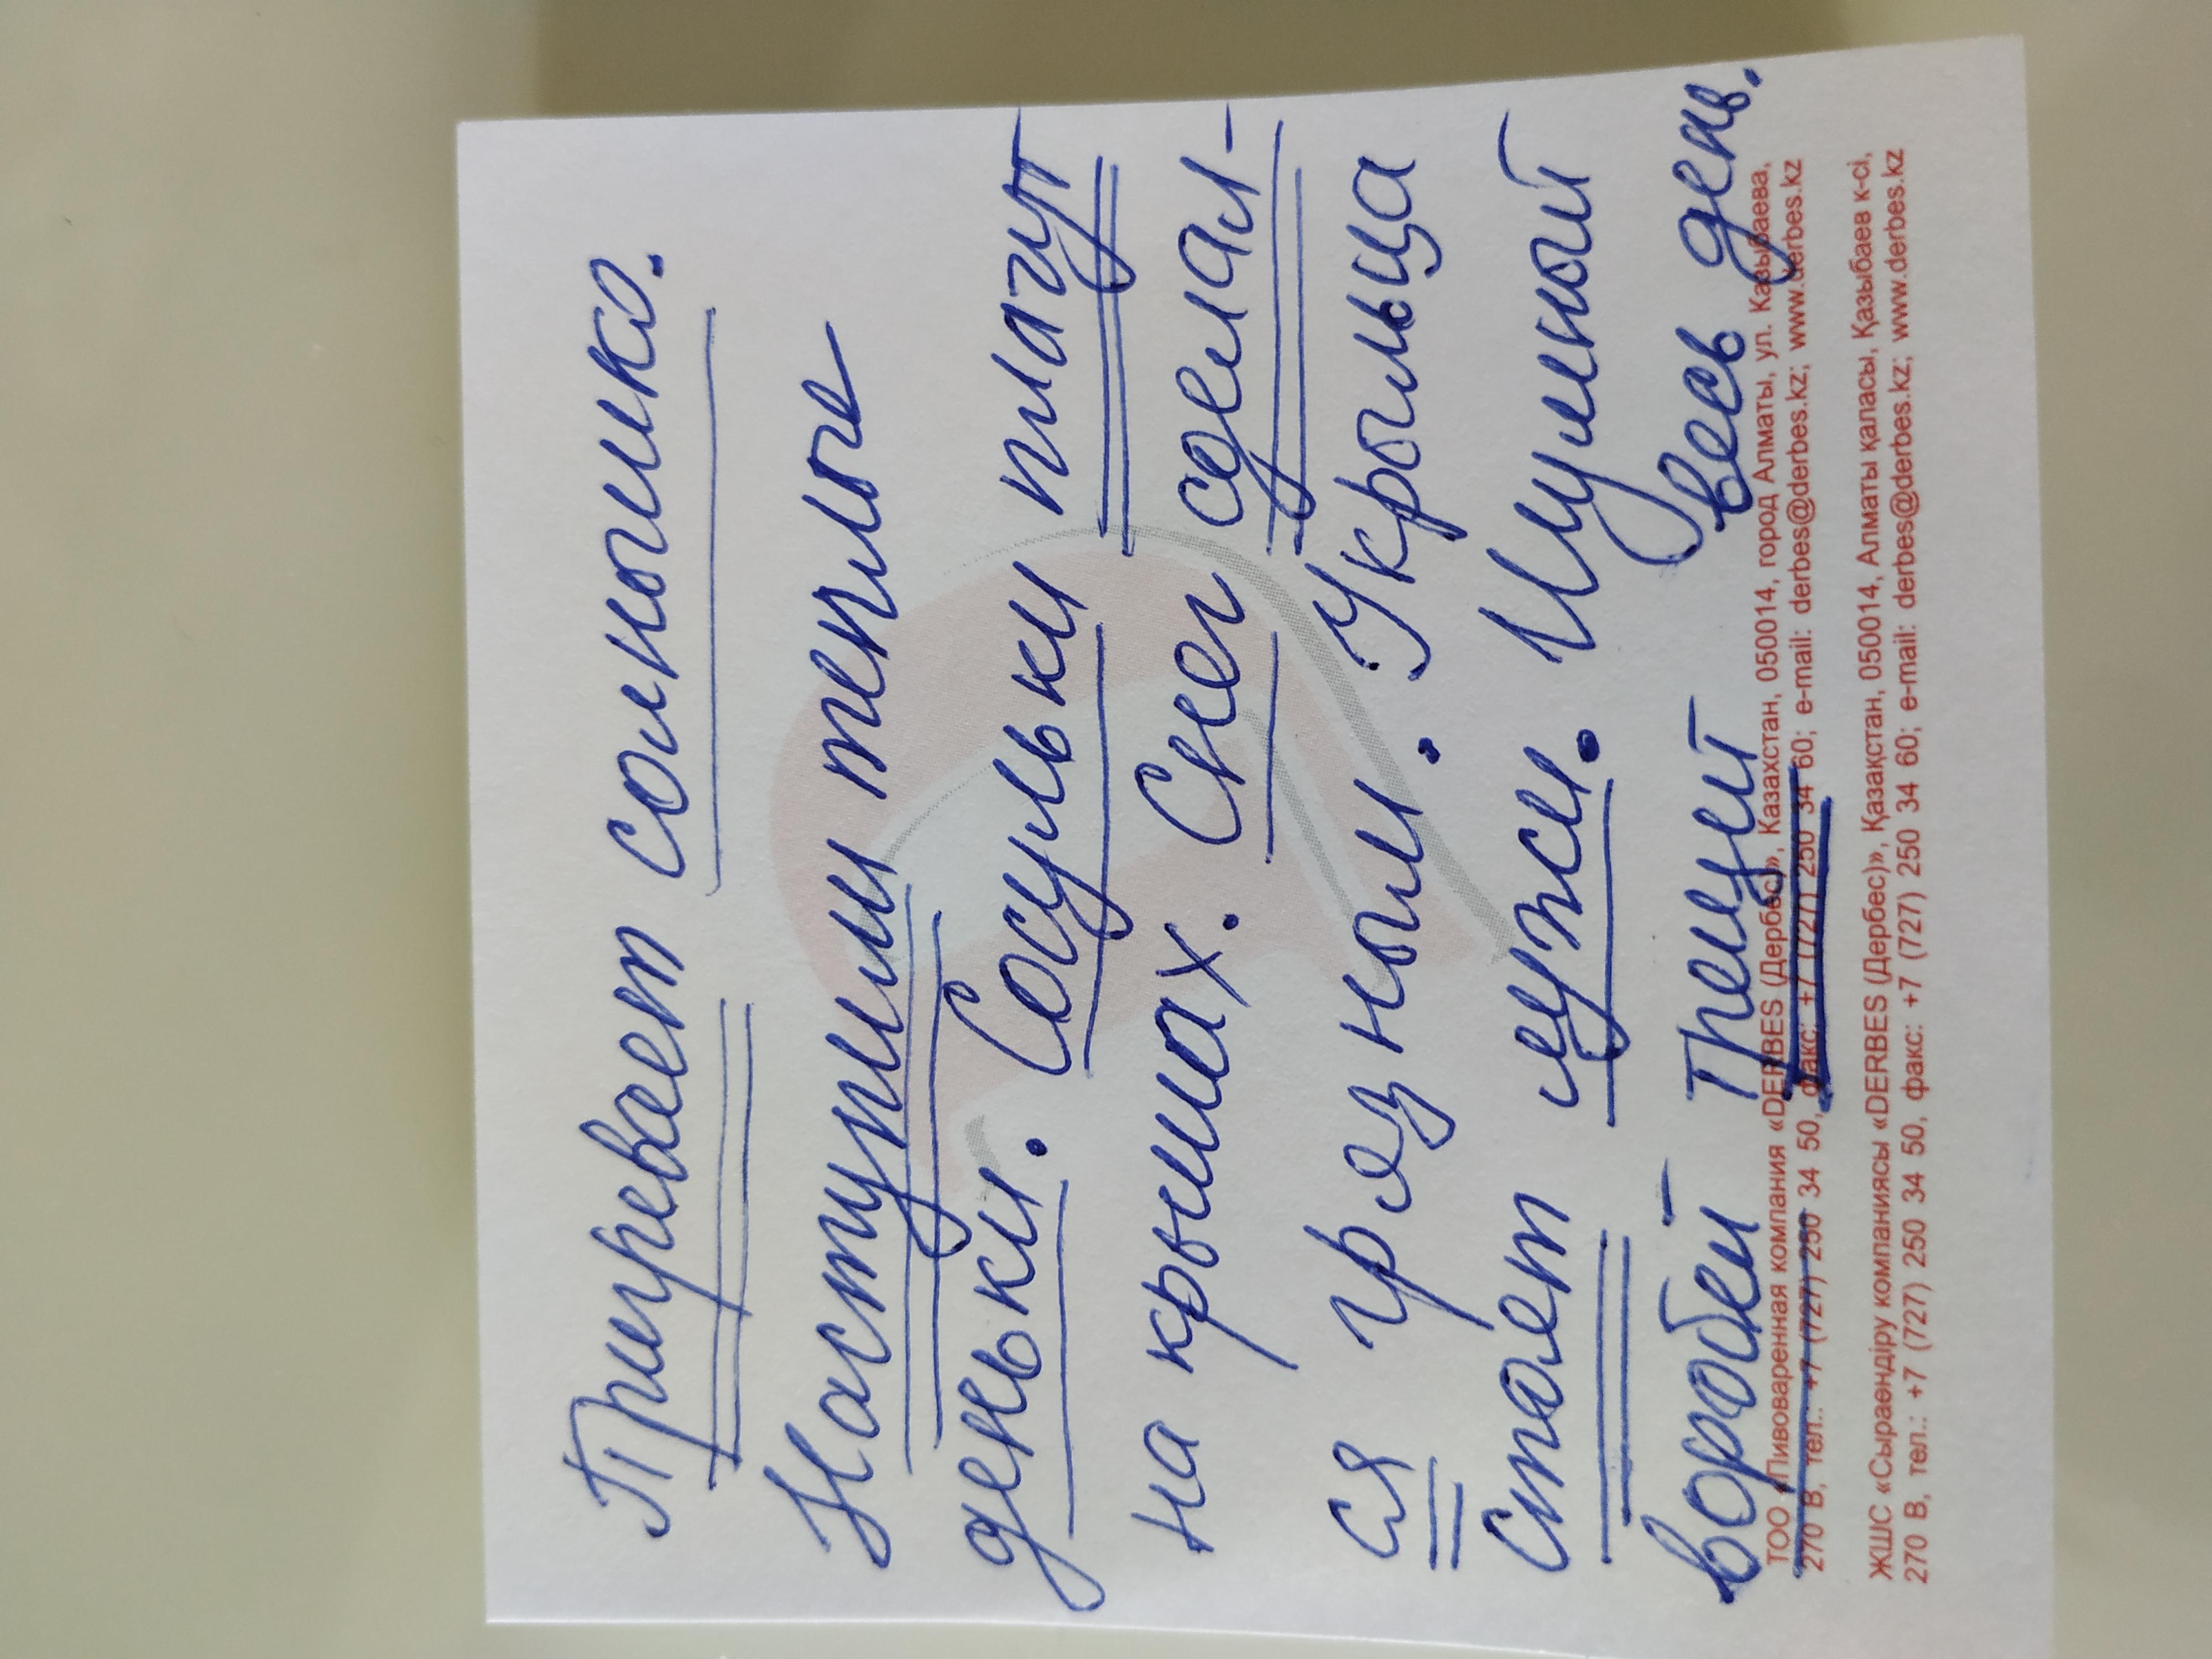 Пригревает солнышко.
Наступили теплые
деньки. Сосульки плачут
на крышах. Снег сделал-
ся грязным. У крыльца
стоят лужи. Шумной
воробей трещит весь день.
ТОО «Пивоваренная компания «DERBES (Дербес)», Казахстан, 050014, город Алматы, ул. Казыбаева,
270 В, тел.: +7 (727) 250 34 50, факс: +7 (727) 250 34 60; e-mail: derbes@derbes.kz; www.derbes.kz
ЖШС «Сыраөндіру компаниясы «DERBES (Дербес)», Қазақстан, 050014, Алматы қаласы, Қазыбаев к-сі,
270 В, тел.: +7 (727) 250 34 50, факс: +7 (727) 250 34 60; e-mail: derbes@derbes.kz; www.derbes.kz